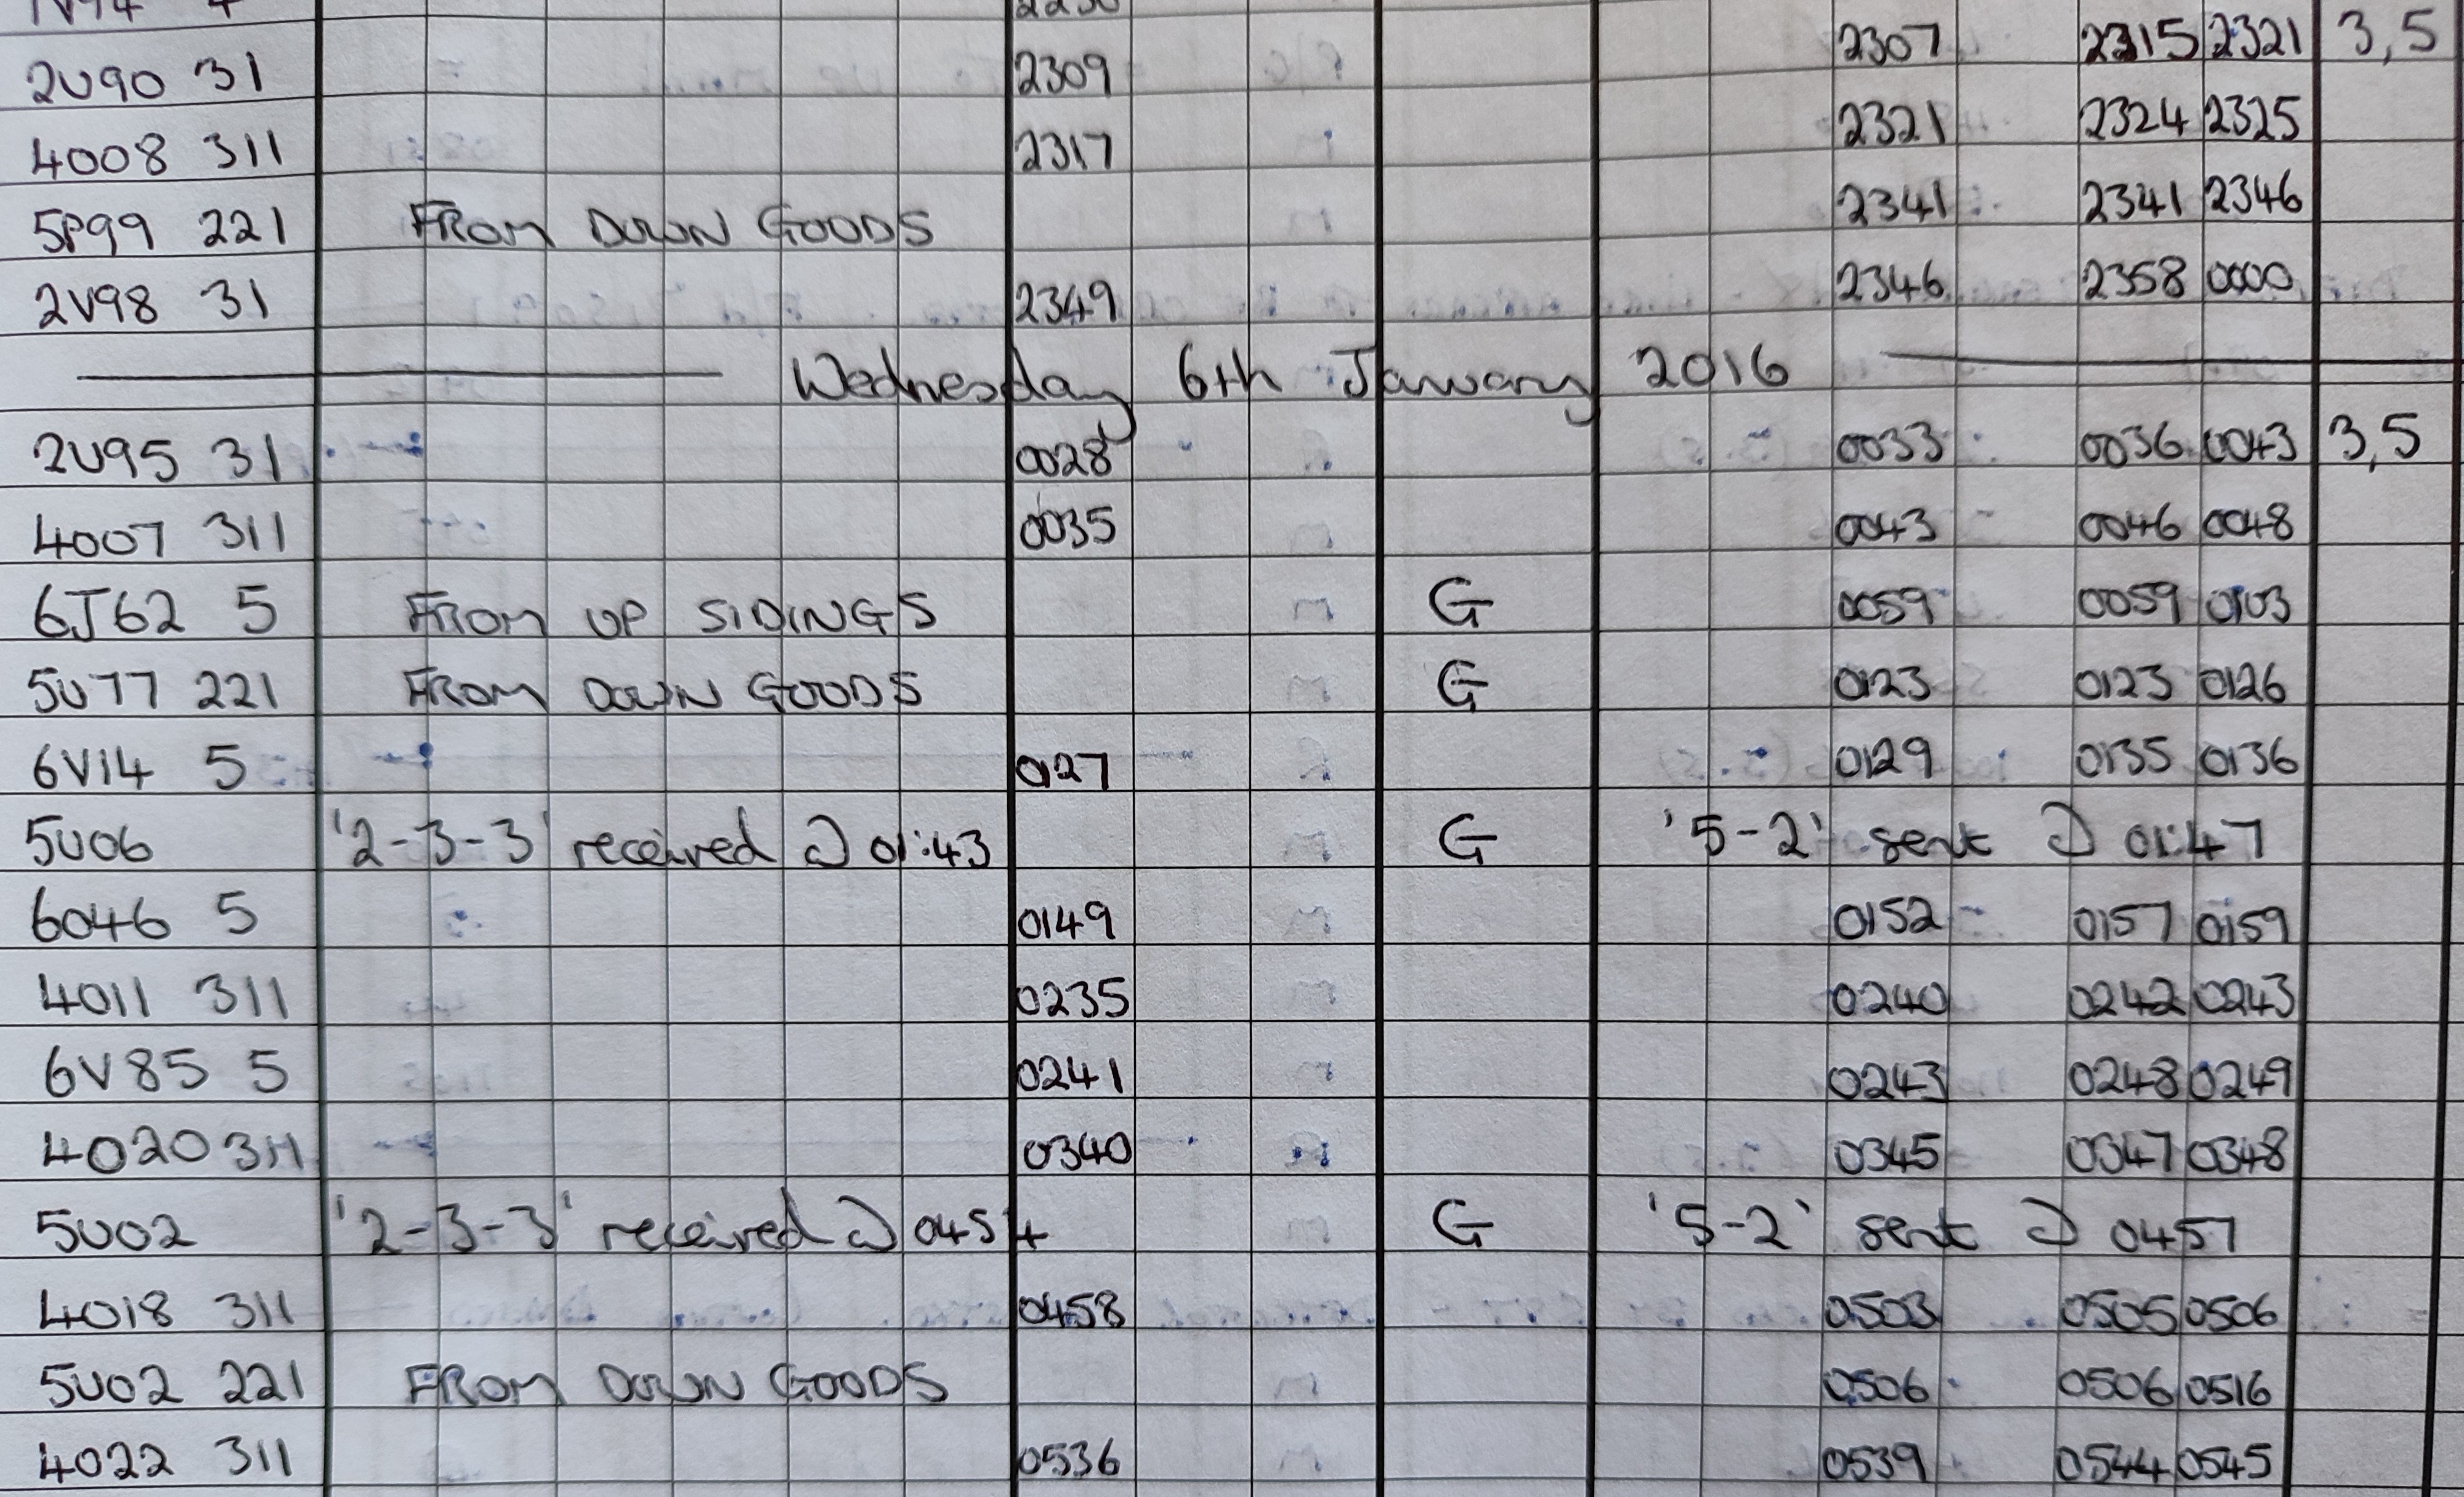 2U90 31 2309 2307 2315 2321 3,5
4O08 311 2317 2321 2324 2325
5P99 221 FROM DOWN GOODS 2341 2341 2346
2V98 31 2349 2346 2358 0000
Wednesday 6th January 2016
2U95 31 0028 0033 0036 0043 3,5
4O07 311 0035 0043 0046 0048
6J62 5 FROM UP SIDINGS G 0059 0059 0103
5U77 221 FROM DOWN GOODS G 0123 0123 0126
6V14 5 0127 0129 0135 0136
5U06 '2-3-3' received @ 01:43 G '5-2' sent @ 01:47
6O46 5 0149 0152 0157 0159
4O11 311 0235 0240 0242 0243
6V85 5 0241 0243 0248 0249
4O20 311 0340 0345 0347 0348
5U02 '2-3-3' received @ 0454 G '5-2' sent @ 0457
4O18 311 0458 0503 0505 0506
5U02 221 FROM DOWN GOODS 0506 0506 0516
4O22 311 0536 0539 0544 0545